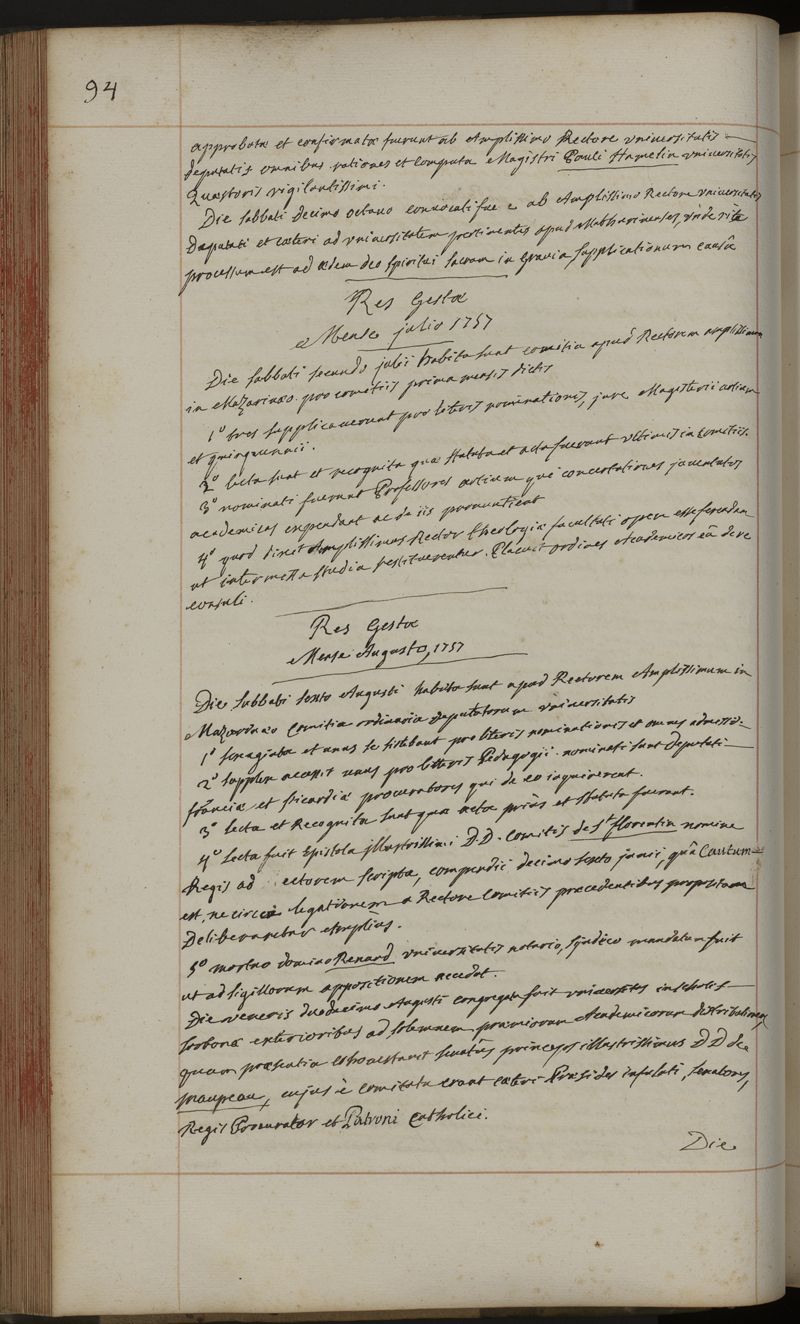 94
approbata et confirmata fuerunt ab Amplissimo Rectore universitatis
deputatis omnibus rationes et computa Magistri Pauli Hamelin universitatis
Quaestoris vigilantissimi.
Die sabbati decimo octavo convocati sunt ab Amplissimo Rectore universitatis
Deputati et caeteri ad universitatem pertinentes apud Mathurinenses, unde rite
processum est ad aedem deo spiritui sacram in gravia supplicationum causâ
Res Gestae
Mense julio 1757
Die sabbati secundo julii habita sunt comitia apud Rectorem amplissimum
in Mazarinaeo pro comitiis prima mensis dictis
1º tres supplicaverunt pro literis nominationis, jure Magisterii artium
et quinquennii.
2º lecta sunt et recognita quae statuta et acta fuerant ultimis in comitiis.
3º nominati fuerunt Professores artium qui concertationes jaculatus
academicas expendant ac de iis pronuntient
4º quod dixit Amplissimus Rector theologiae facultati opem esse ferendam
ut intermissa studia restituerentur. Placuit ordines Academicos eâ de re
consuli.
Res Gestae
Mense Augusto, 1757
Die sabbati sexto Augusti habita sunt apud Rectorem Amplissimum in
Mazarinaeo comitia ordinaria deputatorum universitatis
1º sexaginta et unus se sistebant pro literis nominationis et omnes admissi.
2º supplex accessit unus pro litteris Pedagogii. nominati sunt deputati
franciae et Picardiae procuratores qui de eo inquirerent.
3º lecta et Recognita sunt quae acta priùs et statuta fuerant.
4º lecta fuit Epistola jllustrissimi D.D. Comitis de St florentin nomine
Regis ad ectorem scripta, compendii decimo sexto junii, quâ Cautum
est, ne circa legationem a Rectore Comitiis praecedentibus propositam
Deliberaretur Ampliùs.
5º mortuo domino Renard universitatis notario, syndico mandatum fuit
ut ad sigillorum appositionem accedat.
Die veneris duodecimo Augusti congregata fuit universitas in scholis
sorbonae exterioribus ad solemnem praemiorum Academicorum distributionem,
quam praesentia cohonestavit senatûs princeps illustrissimus D D de
Maupeau, cujus è comitatu erant caeteri Praesides infulati, senatores,
Regis Procurator et Patroni Catholici.
Die